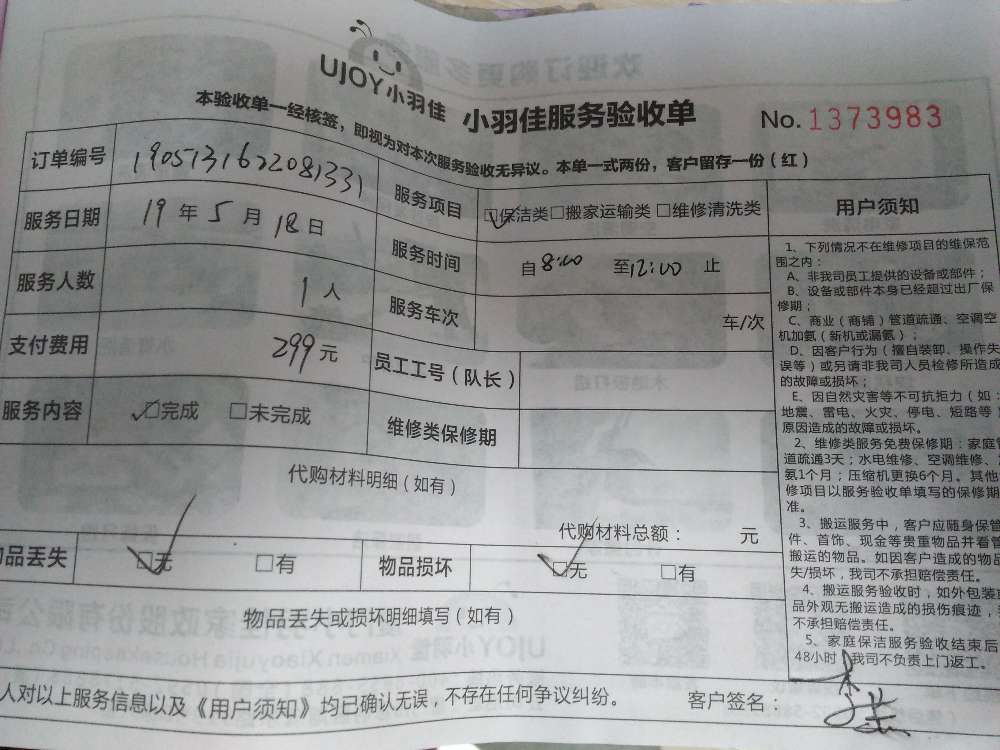 UJOY小羽佳
小羽佳服务验收单
No. 1373983
本验收单一经核签，即视为对本次服务验收无异议。本单一式两份，客户留存一份（红）
订单编号 1905131622081331
服务项目 □保洁类 □搬家运输类 □维修清洗类
服务日期 19 年 5 月 18 日
服务时间 自 8:00 至 12:00 止
服务人数 1 人
服务车次 车/次
支付费用 299 元
员工工号（队长）
服务内容 □完成 □未完成
维修类保修期
代购材料明细（如有）
代购材料总额： 元
品丢失 □无 □有 物品损坏 □无 □有
物品丢失或损坏明细填写（如有）
人对以上服务信息以及《用户须知》均已确认无误，不存在任何争议纠纷。
客户签名：
用户须知
1、下列情况不在维修项目的维保范
围之内：
A、非我司员工提供的设备或部件；
B、设备或部件本身已经超过出厂保
修期；
C、商业（商铺）管道疏通、空调空
机加氨（新机或漏氨）；
D、因客户行为（擅自装卸、操作失
误等）或另请非我司人员检修所造成
的故障或损坏；
E、因自然灾害等不可抗拒力（如：
地震、雷电、火灾、停电、短路等
原因造成的故障或损坏。
2、维修类服务免费保修期：家庭管
道疏通3天；水电维修、空调维修、
氨1个月；压缩机更换6个月。其他
修项目以服务验收单填写的保修期
准。
3、搬运服务中，客户应随身保管
件、首饰、现金等贵重物品并看管
搬运的物品。如因客户造成的物品
失/损坏，我司不承担赔偿责任。
4、搬运服务验收时，如外包装或
品外观无搬运造成的损伤痕迹，
不承担赔偿责任。
5、家庭保洁服务验收结束后
48小时，我司不负责上门返工。